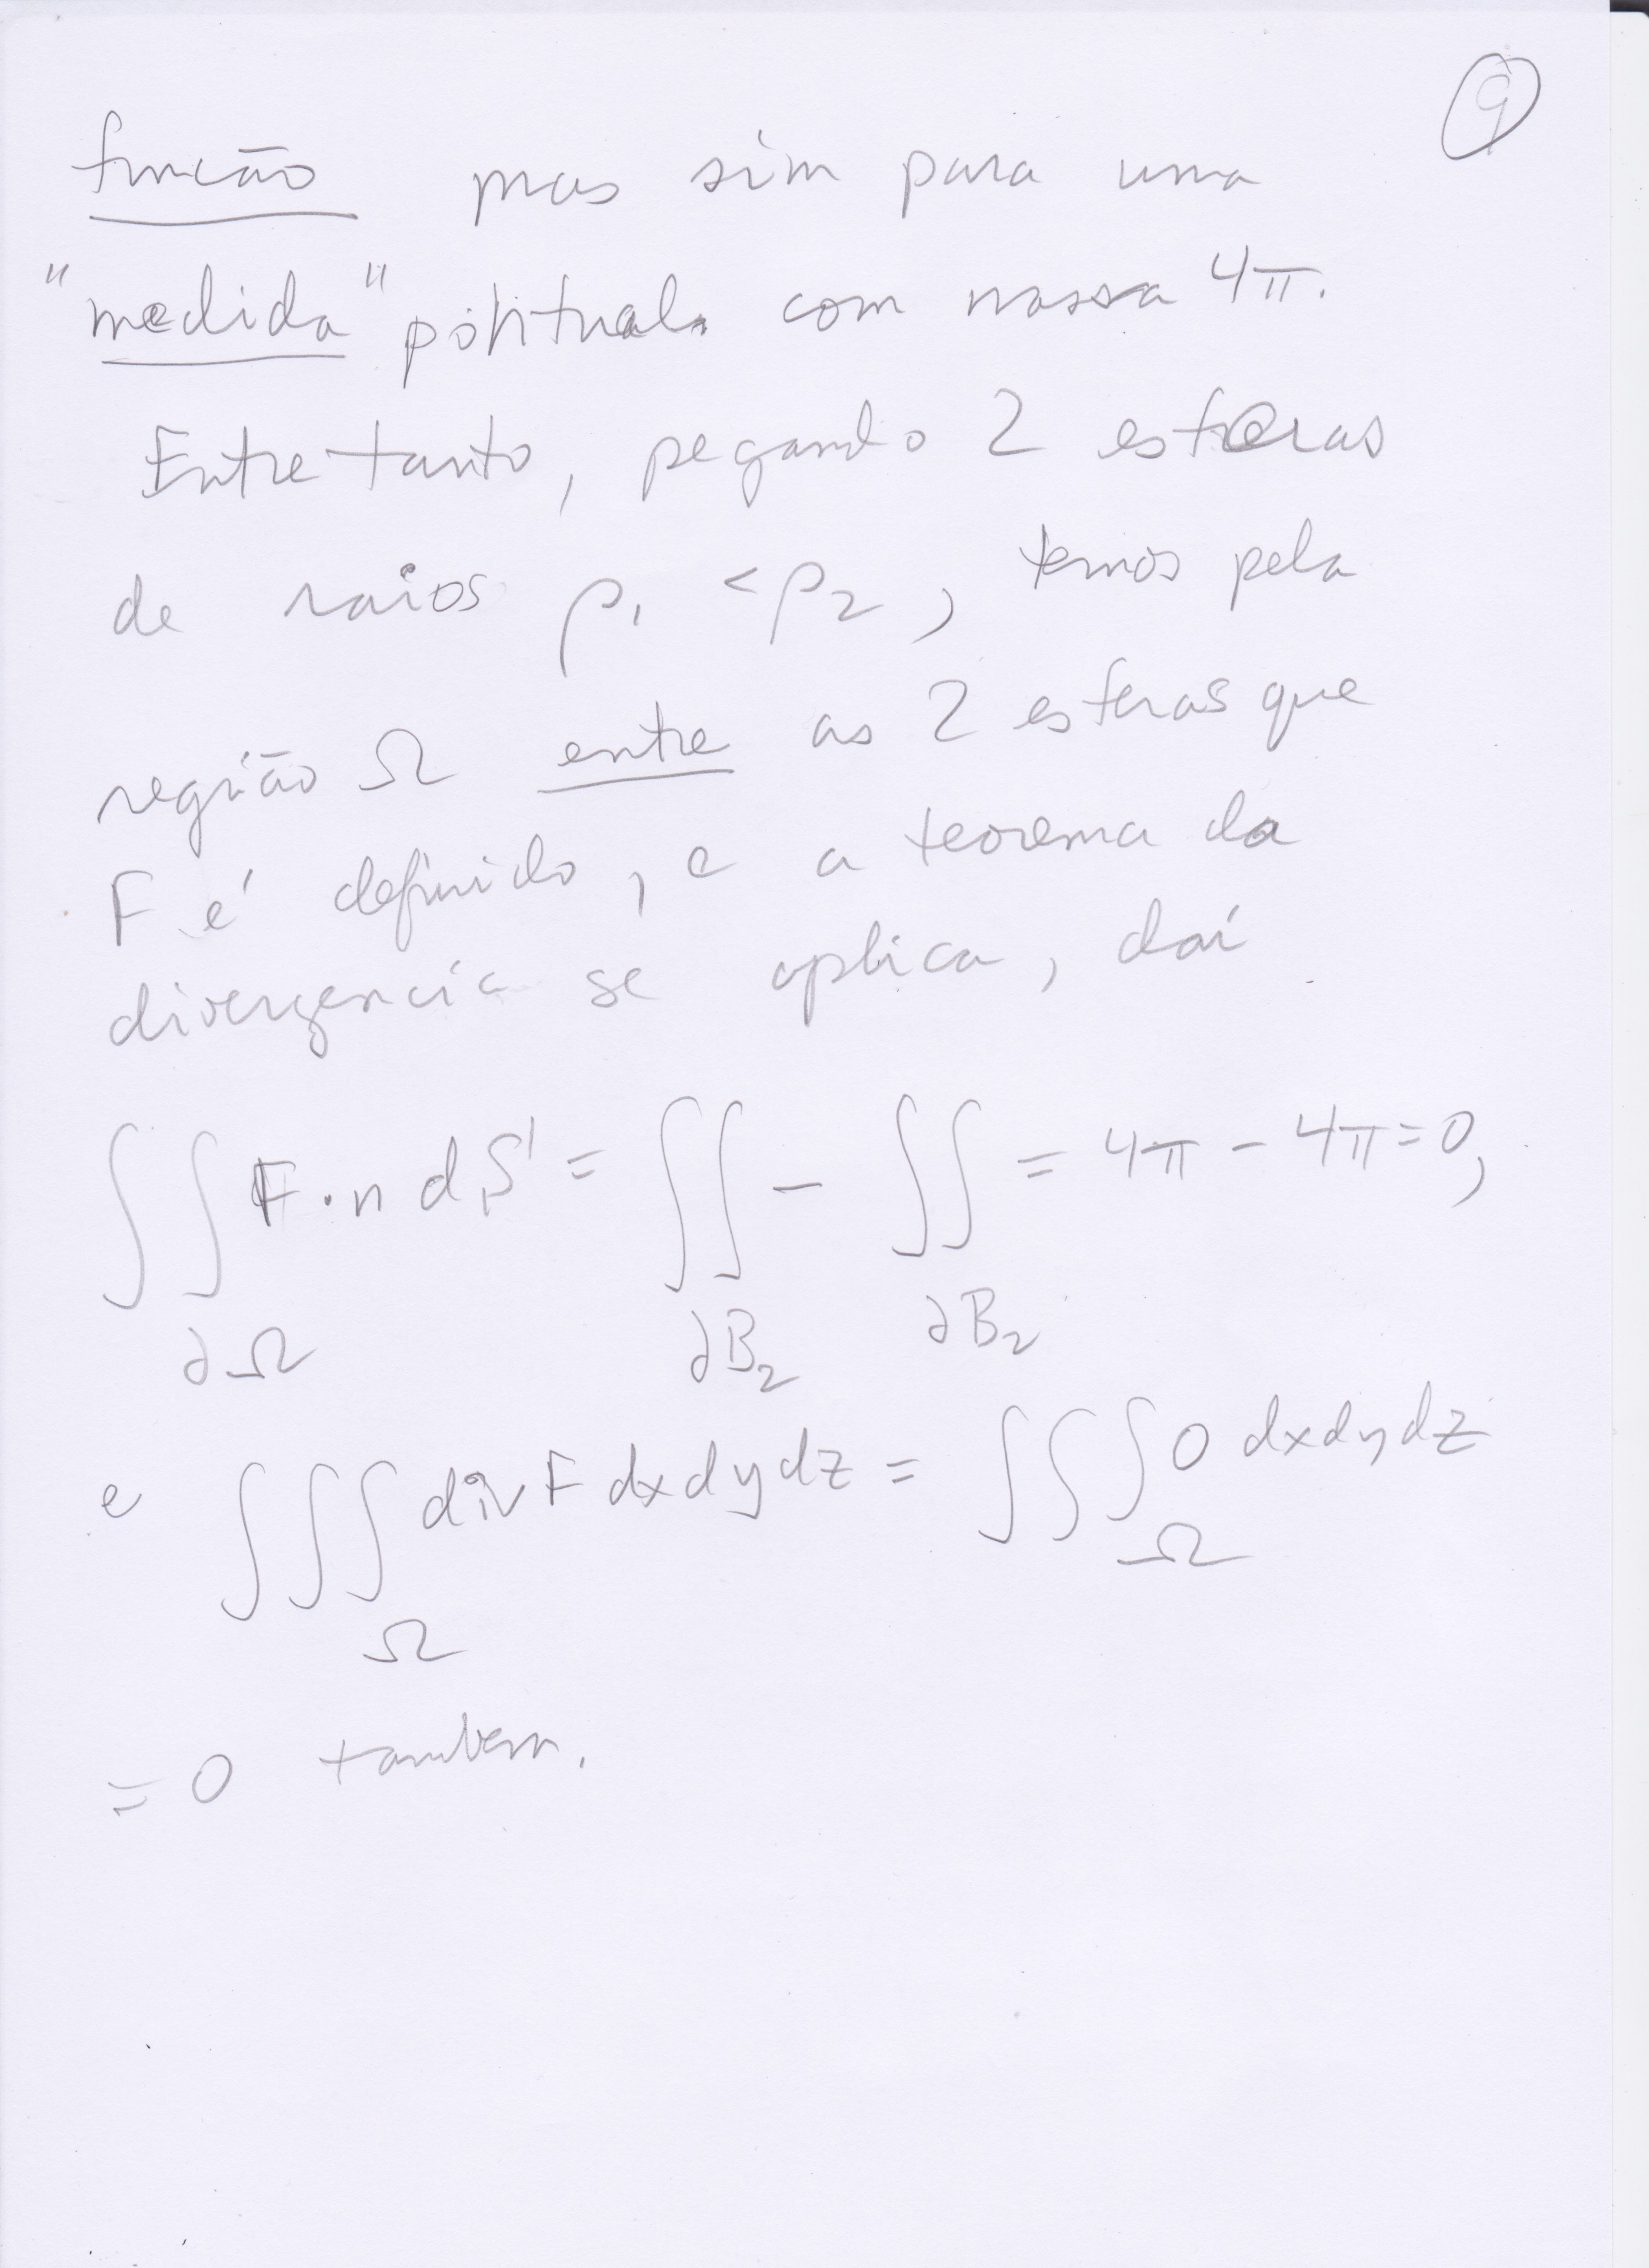 9
função mas sim para uma
"medida" pontual com massa 4π.
Entretanto, pegando 2 esferas
de raios ρ₁ < ρ₂, temos pela
região Ω entre as 2 esferas que
F é definido, e a teorema da
divergencia se aplica, daí
∫∫ F·n dS = ∫∫ - ∫∫ = 4π - 4π = 0,
∂Ω ∂B₂ ∂B₂
e ∫∫∫ div F dxdydz = ∫∫∫ 0 dxdydz
Ω Ω
= 0 tambem.